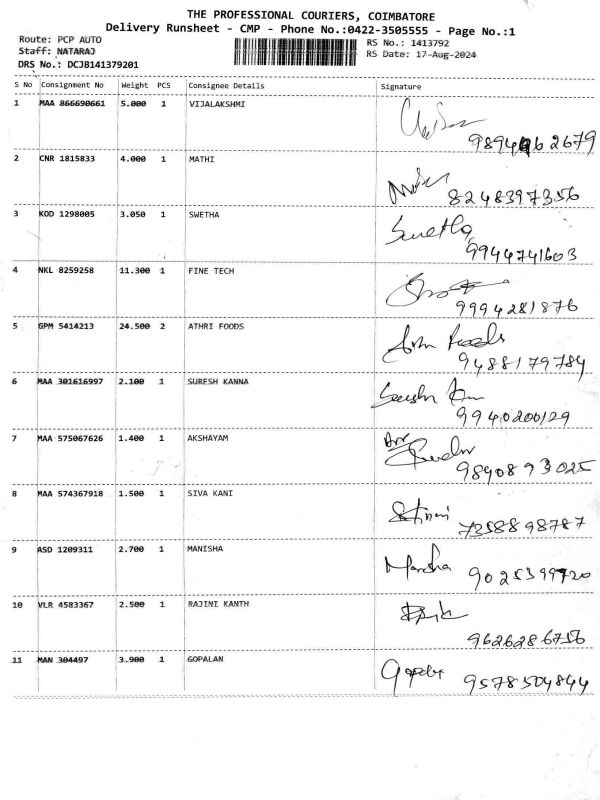 THE PROFESSIONAL COURIERS, COIMBATORE
Delivery Runsheet - CMP - Phone No.:0422-3505555 - Page No.:1
Route: PCP AUTO
Staff: NATARAJ
DRS No.: DCJB141379201
RS No.: 1413792
RS Date: 17-Aug-2024
S No Consignment No Weight PCS Consignee Details Signature
1 MAA 866690661 5.000 1 VIJALAKSHMI
2 CNR 1815833 4.000 1 MATHI
8248397356
3 KOD 1298005 3.050 1 SWETHA Swetha
9944741603
4 NKL 8259258 11.300 1 FINE TECH
9994281876
5 GPM 5414213 24.500 2 ATHRI FOODS
9488179784
6 MAA 301616997 2.100 1 SURESH KANNA
9940200129
7 MAA 575067626 1.400 1 AKSHAYAM
9840893025
8 MAA 574367918 1.500 1 SIVA KANI
7358898787
9 ASD 1209311 2.700 1 MANISHA Manisha
9025399720
10 VLR 4583367 2.500 1 RAJINI KANTH
9626286756
11 MAN 304497 3.900 1 GOPALAN
9578504844